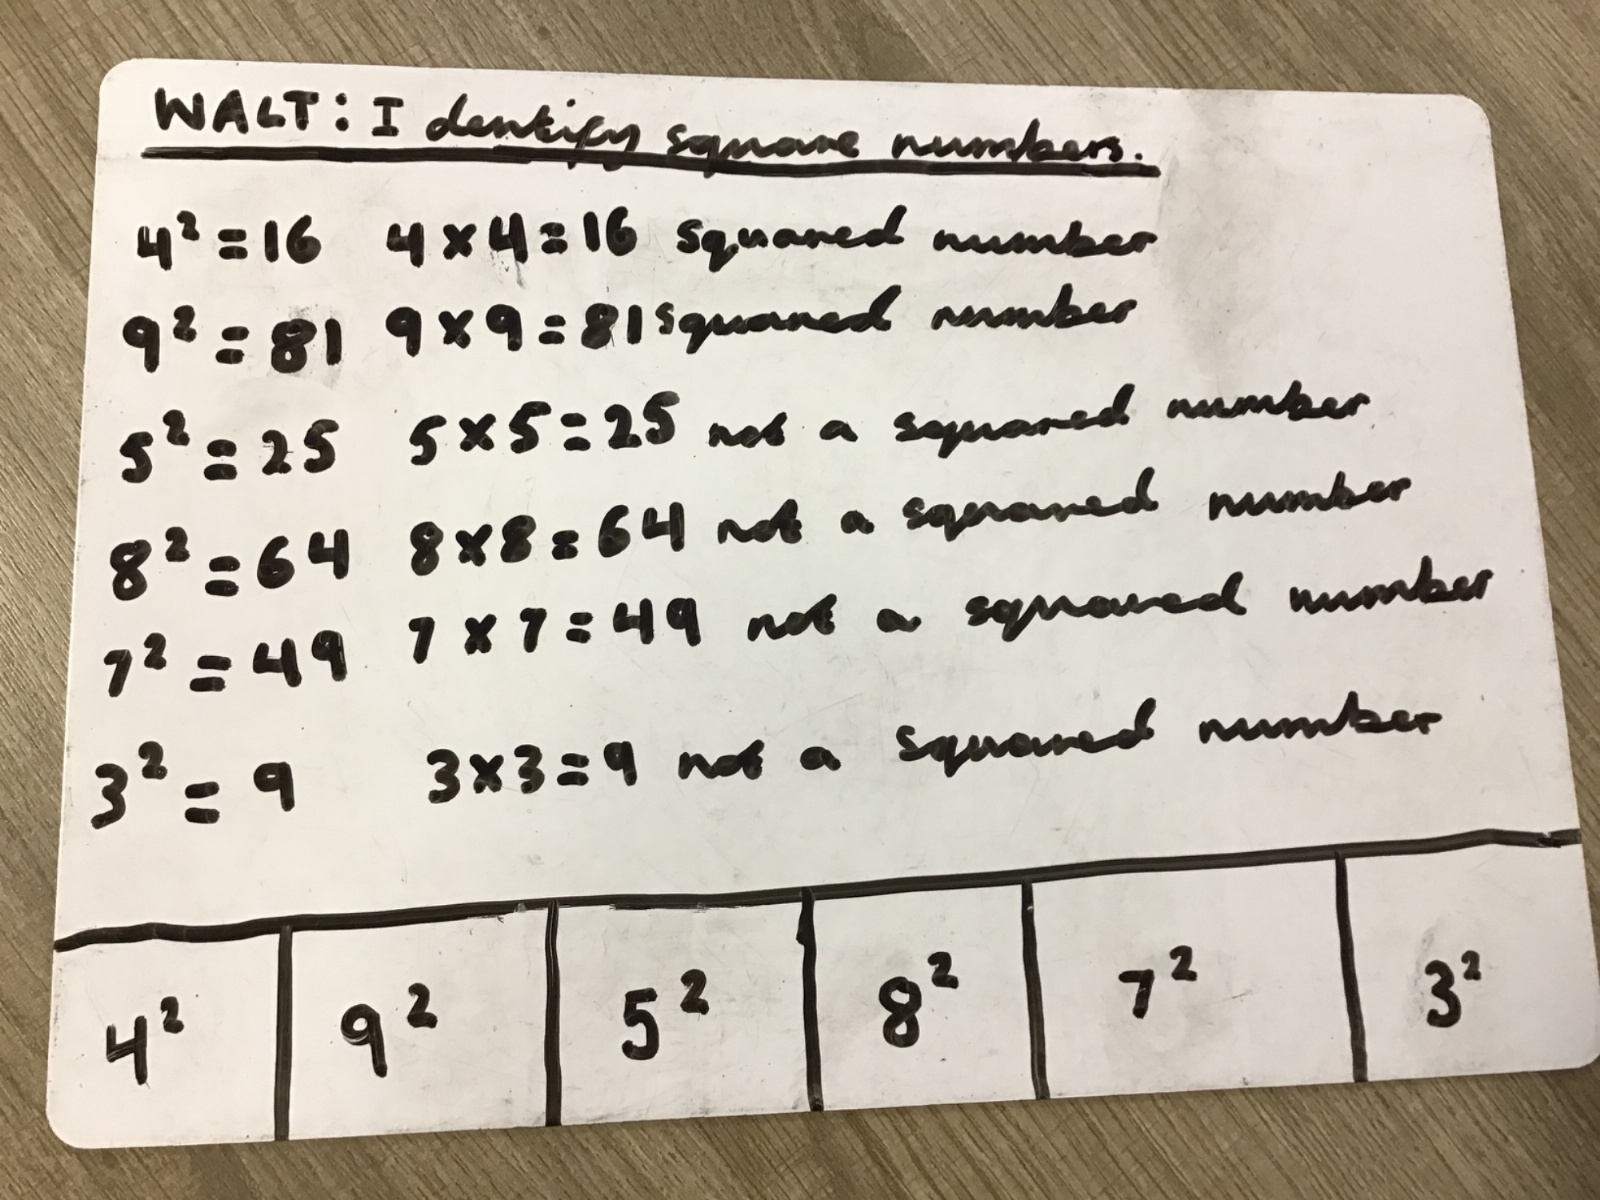 WALT: Identify square numbers.
4² = 16 4 x 4 = 16 squared number
9² = 81 9 x 9 = 81 squared number
5² = 25 5 x 5 = 25 not a squared number
8² = 64 8 x 8 = 64 not a squared number
7² = 49 7 x 7 = 49 not a squared number
3² = 9 3 x 3 = 9 not a squared number
4² 9² 5² 8² 7² 3²